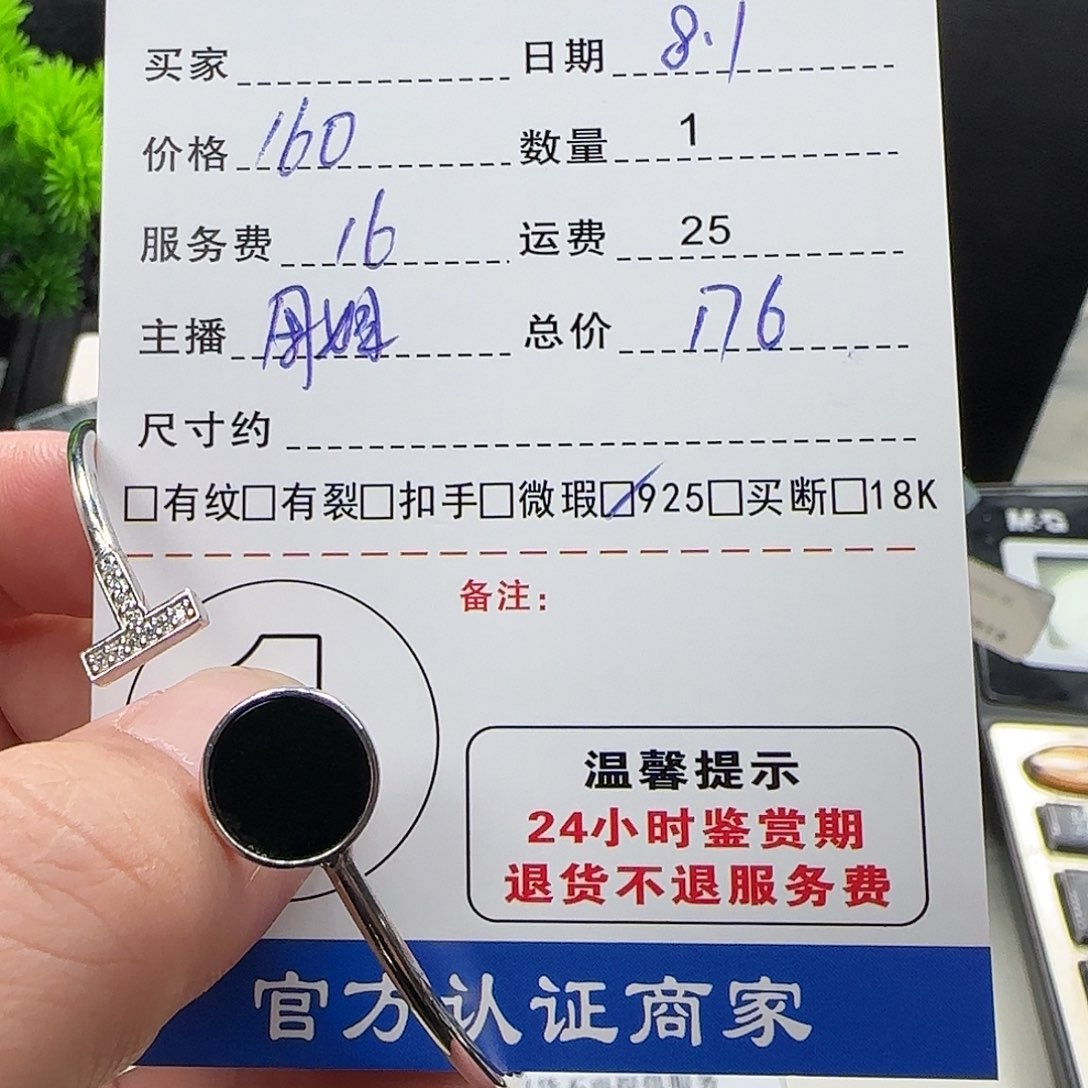 买家 日期 8.1
价格 160 数量 1
服务费 16 运费 25
主播 周姐 总价 176
尺寸约
□有纹□有裂□扣手□微瑕☑925□买断□18K
备注：
1
温馨提示
24小时鉴赏期
退货不退服务费
官方认证商家
M&G